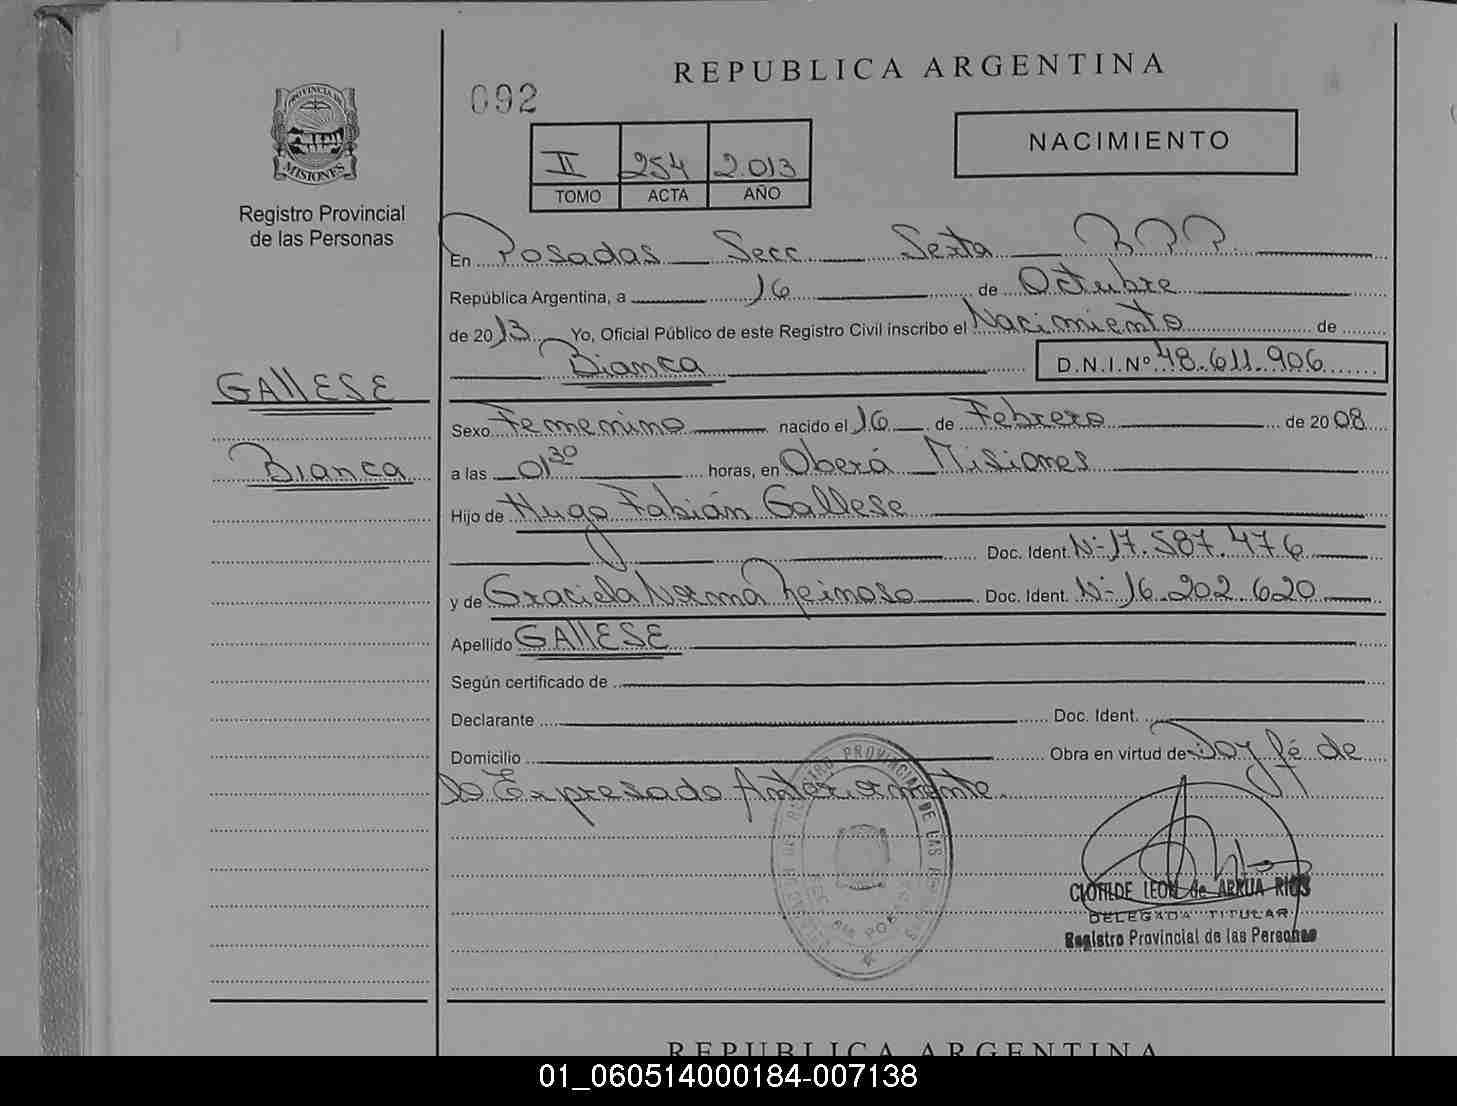 REPUBLICA ARGENTINA
092
NACIMIENTO
II 254 2.013
TOMO ACTA AÑO
PROVINCIA DE
MISIONES
Registro Provincial
de las Personas
En Posadas Secc Sexta
República Argentina, a 16 de Octubre
de 2013 Yo, Oficial Público de este Registro Civil inscribo el Nacimiento de
Bianca D.N.I.Nº 48.611.906
GAllESE
Sexo Femenino nacido el 16 de Febrero de 2008
Bianca
a las 01 30 horas, en Oberá Misiones
Hijo de Hugo Fabián Gallese
Doc. Ident. Nº 17.587.476
y de Graciela Norma Reinoso Doc. Ident. Nº 16.202.620
Apellido GAllESE
Según certificado de
Declarante Doc. Ident.
Domicilio Obra en virtud de Doy fé de
lo Expresado Anteriormente.
CLOTILDE LEON de ARRUA RIOS
DELEGADA TITULAR
Registro Provincial de las Personas
REPUBLICA ARGENTINA
01_060514000184-007138